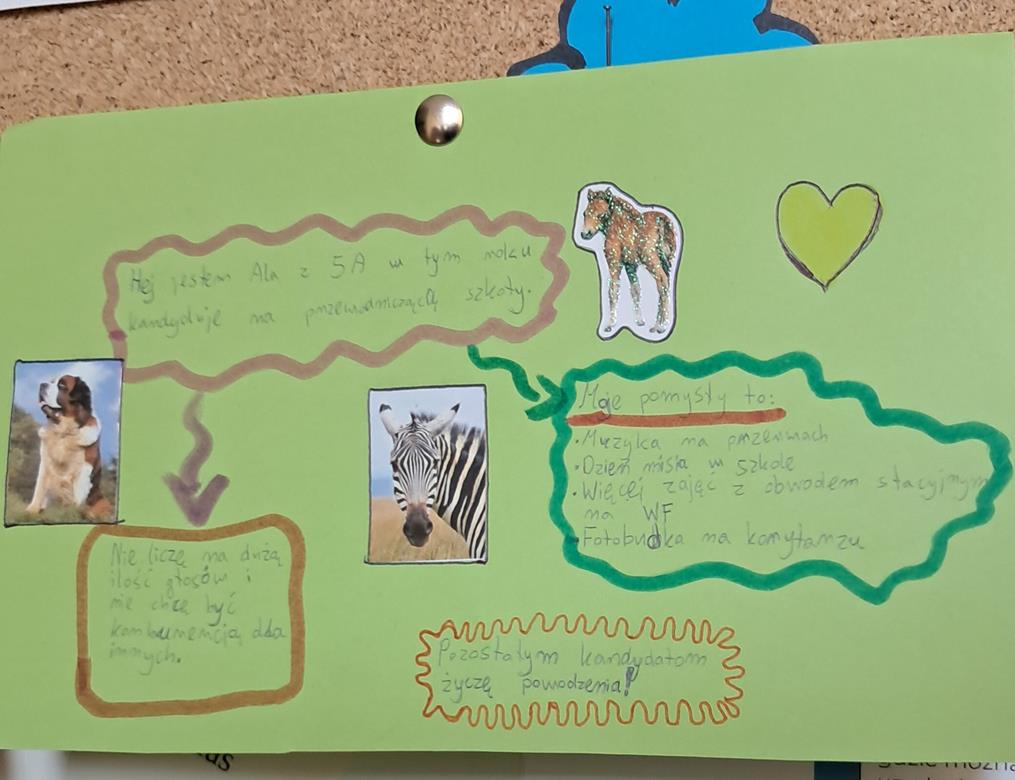 Hej jestem Ala z 5A w tym roku
kandyduje na przewodniczącą szkoły.
Moje pomysły to:
• Muzyka na przerwach
• Dzień misia w szkole
• Więcej zajęć z obwodem stacyjnym
na WF
• Fotobudka na korytarzu
Nie liczę na dużą
ilość głosów i
nie chcę być
konkurencją dla
innych.
Pozostałym kandydatom
życzę powodzenia!